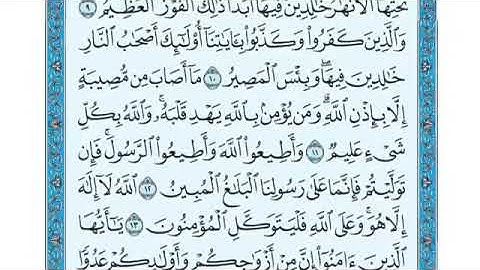 تَحْتِهَا ٱلْأَنْهَٰرُ خَٰلِدِينَ فِيهَآ أَبَدًا ذَٰلِكَ ٱلْفَوْزُ ٱلْعَظِيمُ ٩
وَٱلَّذِينَ كَفَرُوا۟ وَكَذَّبُوا۟ بِـَٔايَٰتِنَآ أُو۟لَٰٓئِكَ أَصْحَٰبُ ٱلنَّارِ
خَٰلِدِينَ فِيهَا ۖ وَبِئْسَ ٱلْمَصِيرُ ١٠ مَآ أَصَابَ مِن مُّصِيبَةٍ
إِلَّا بِإِذْنِ ٱللَّهِ ۗ وَمَن يُؤْمِنۢ بِٱللَّهِ يَهْدِ قَلْبَهُۥ ۚ وَٱللَّهُ بِكُلِّ
شَىْءٍ عَلِيمٌ ١١ وَأَطِيعُوا۟ ٱللَّهَ وَأَطِيعُوا۟ ٱلرَّسُولَ ۚ فَإِن
تَوَلَّيْتُمْ فَإِنَّمَا عَلَىٰ رَسُولِنَا ٱلْبَلَٰغُ ٱلْمُبِينُ ١٢ ٱللَّهُ لَآ إِلَٰهَ
إِلَّا هُوَ ۚ وَعَلَى ٱللَّهِ فَلْيَتَوَكَّلِ ٱلْمُؤْمِنُونَ ١٣ يَٰٓأَيُّهَا
ٱلَّذِينَ ءَامَنُوٓا۟ إِنَّ مِنْ أَزْوَٰجِكُمْ وَأَوْلَٰدِكُمْ عَدُوًّا